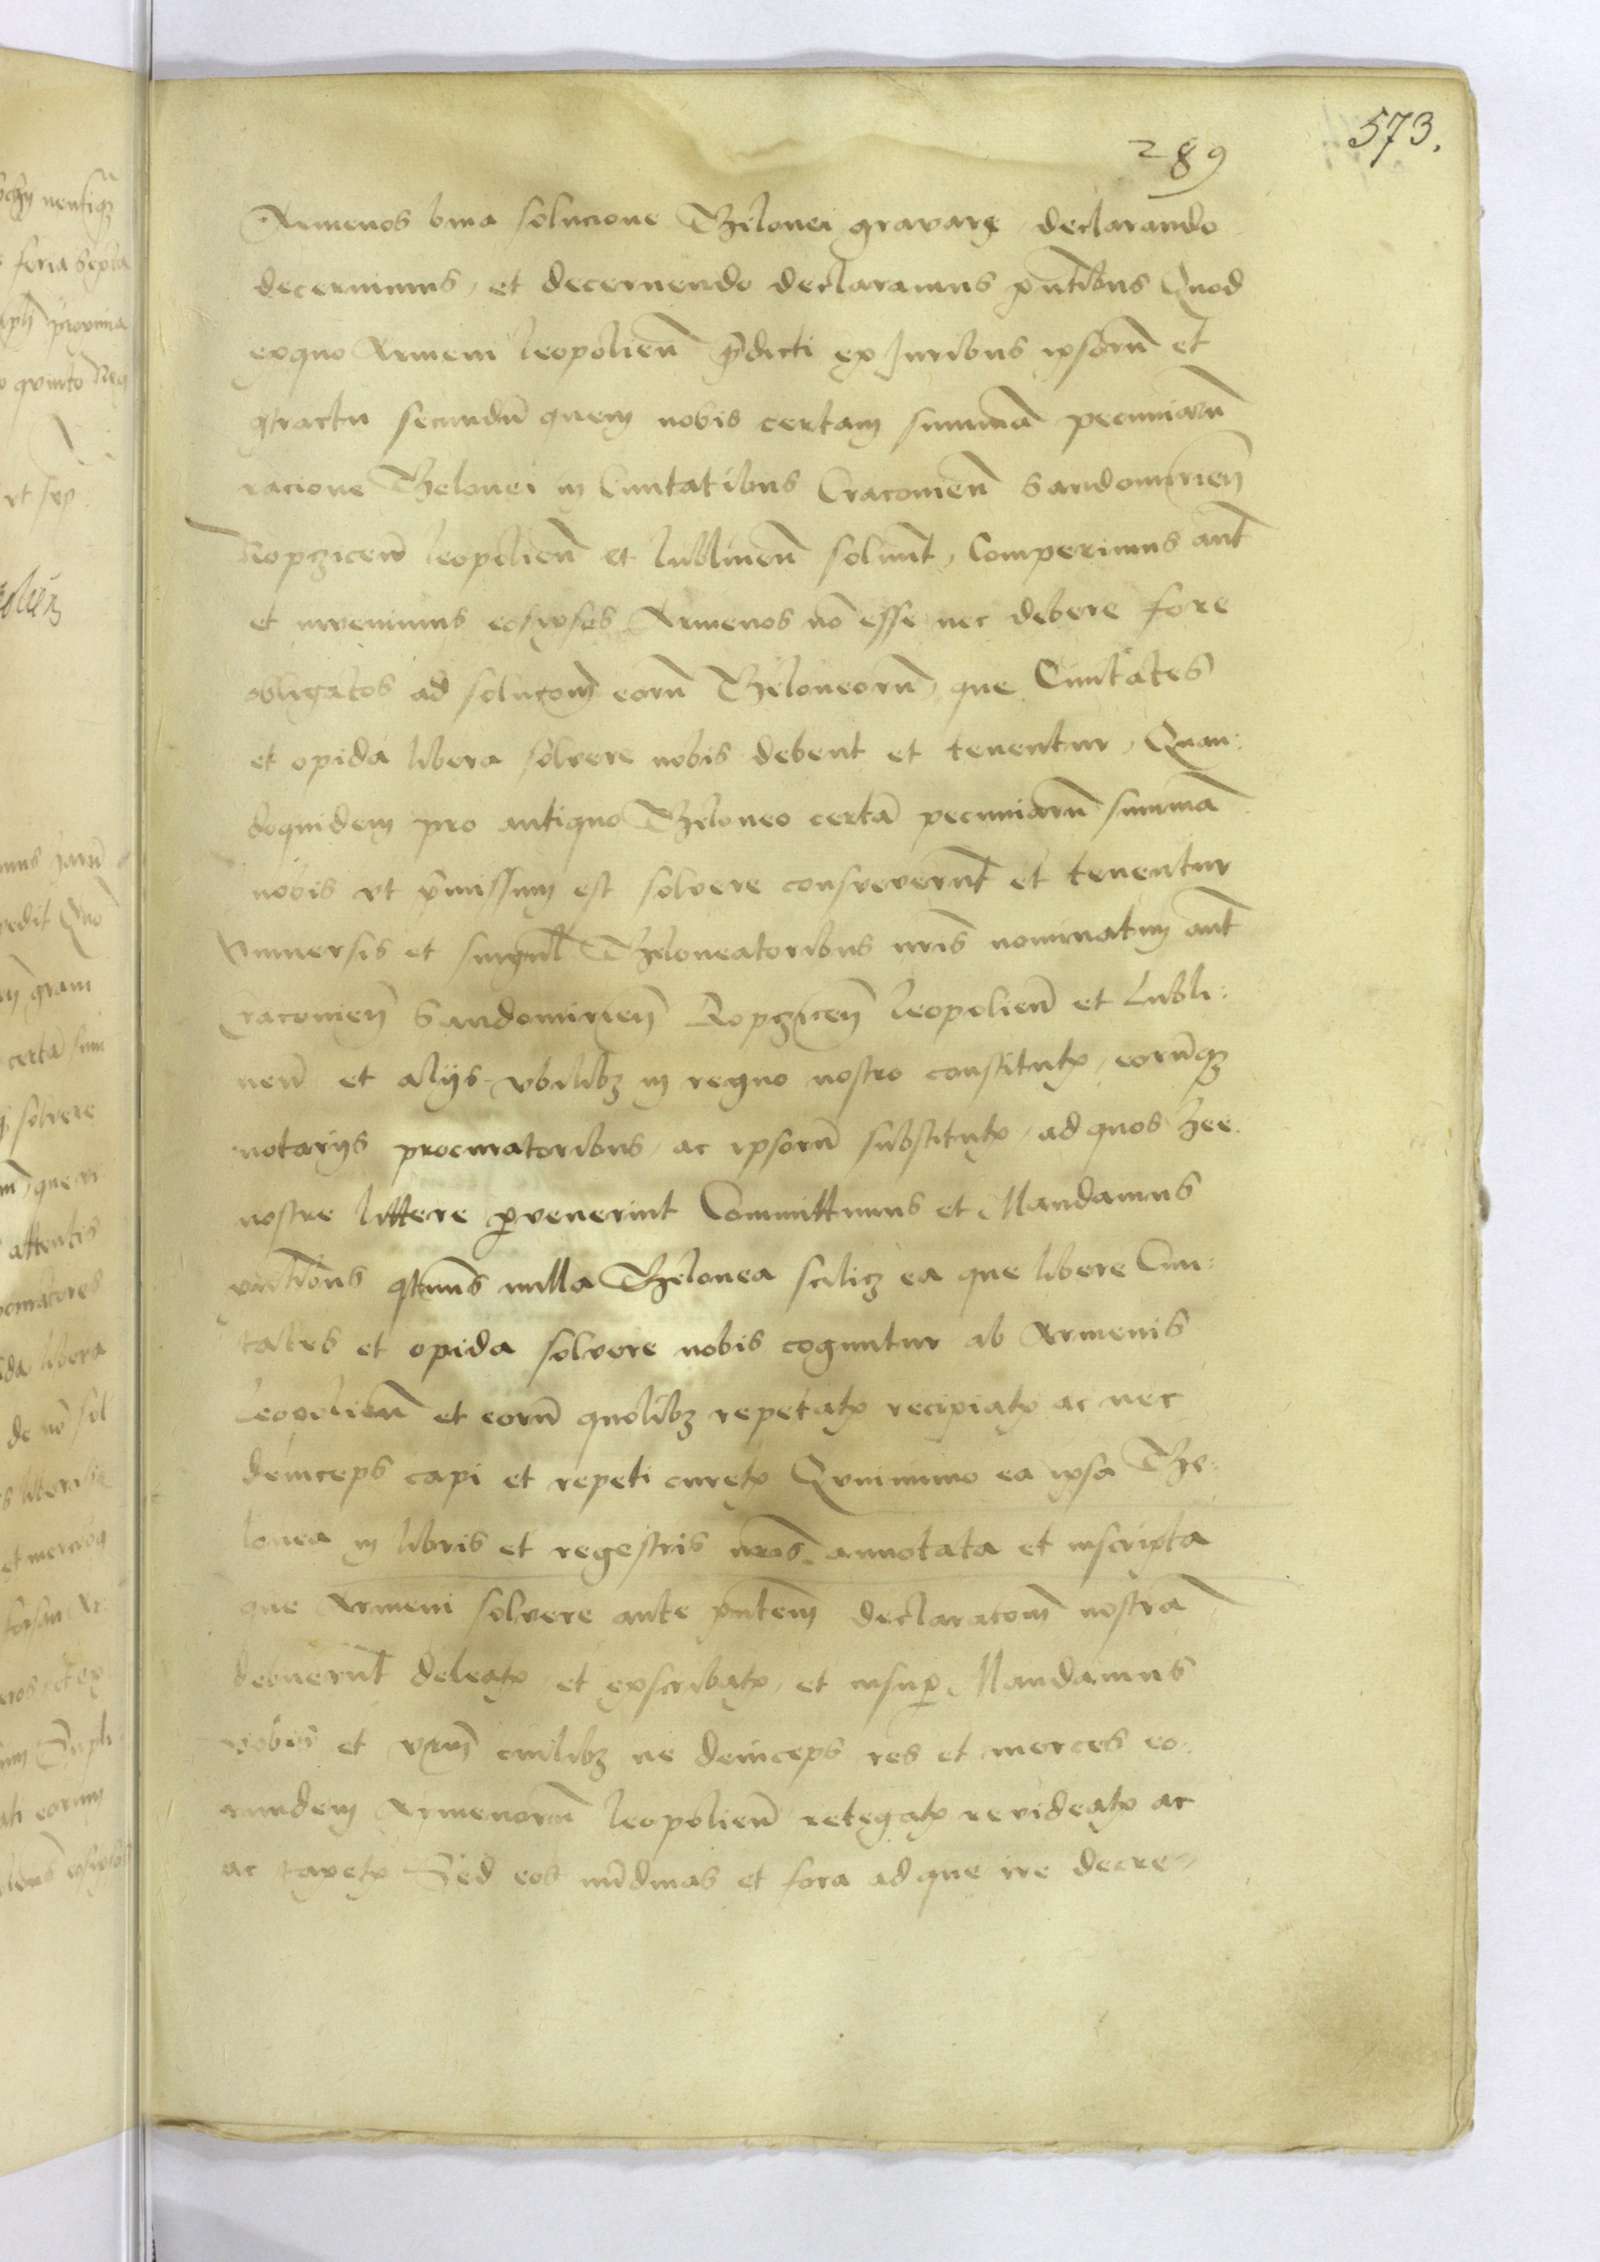 573.
289
Armenos bina solucione Thelonei gravare, declarando
decernimus, et decernendo declaramus pñtibus Quod
exquo Armeni leopolieñ p̃dicti ex Juribus ipsorũ et
qtractu secundũ quem nobis certam summã pecuniarũ
racione Thelonei in Ciuitatibus Cracouieñ Sandomirieñ
Ropziceñ leopolieñ et lublineñ soluunt, Comperimus aut̃
et invenimus eosipsos Armenos nõ esse nec debere fore
obligatos ad solucoñ eorũ Theloneorũ, que Ciuitates
et opida libera solvere nobis debent et tenentur, Quan:
doquidem pro antiquo Theloneo certã pecuniarũ summã
nobis vt p̃missum est solvere consveverunt et tenentur
Vniuersis et singul̃ Theloneatoribus nris̃ nominatim aut̃
Cracouieñ Sandomirieñ Ropziceñ leopolieñ et Lubli:
neñ et alijs vbilibz in regno nostro constitut, eorũqz
notarijs procuratoribus, ac ipsorũ substitut, ad quos hee
nostre littere p̱venerint Committimus et Mandamus
qteñus nulla Thelonea scilicz ea que libere Ciui:
tates et opida solvere nobis coguntur ab Armenis
Leopolieñ et eorũ quolibz repetat recipiat ac nec
deinceps capi et repeti curet Qvinimmo ea ipsa The:
lonea in libris et regestris nris̃ annotata et inscripta
que Armeni solvere ante pñtem declaracoñ nostrã
debuerunt deleat, et exscribat, et insup̱ Mandamus
vobis et vr̃m cuilibz ne deinceps res et merces eo:
rundem Armenorũ leopolieñ retegat revideat ac
ac taxet Sed eos nũdinas et fora ad que ire decre-